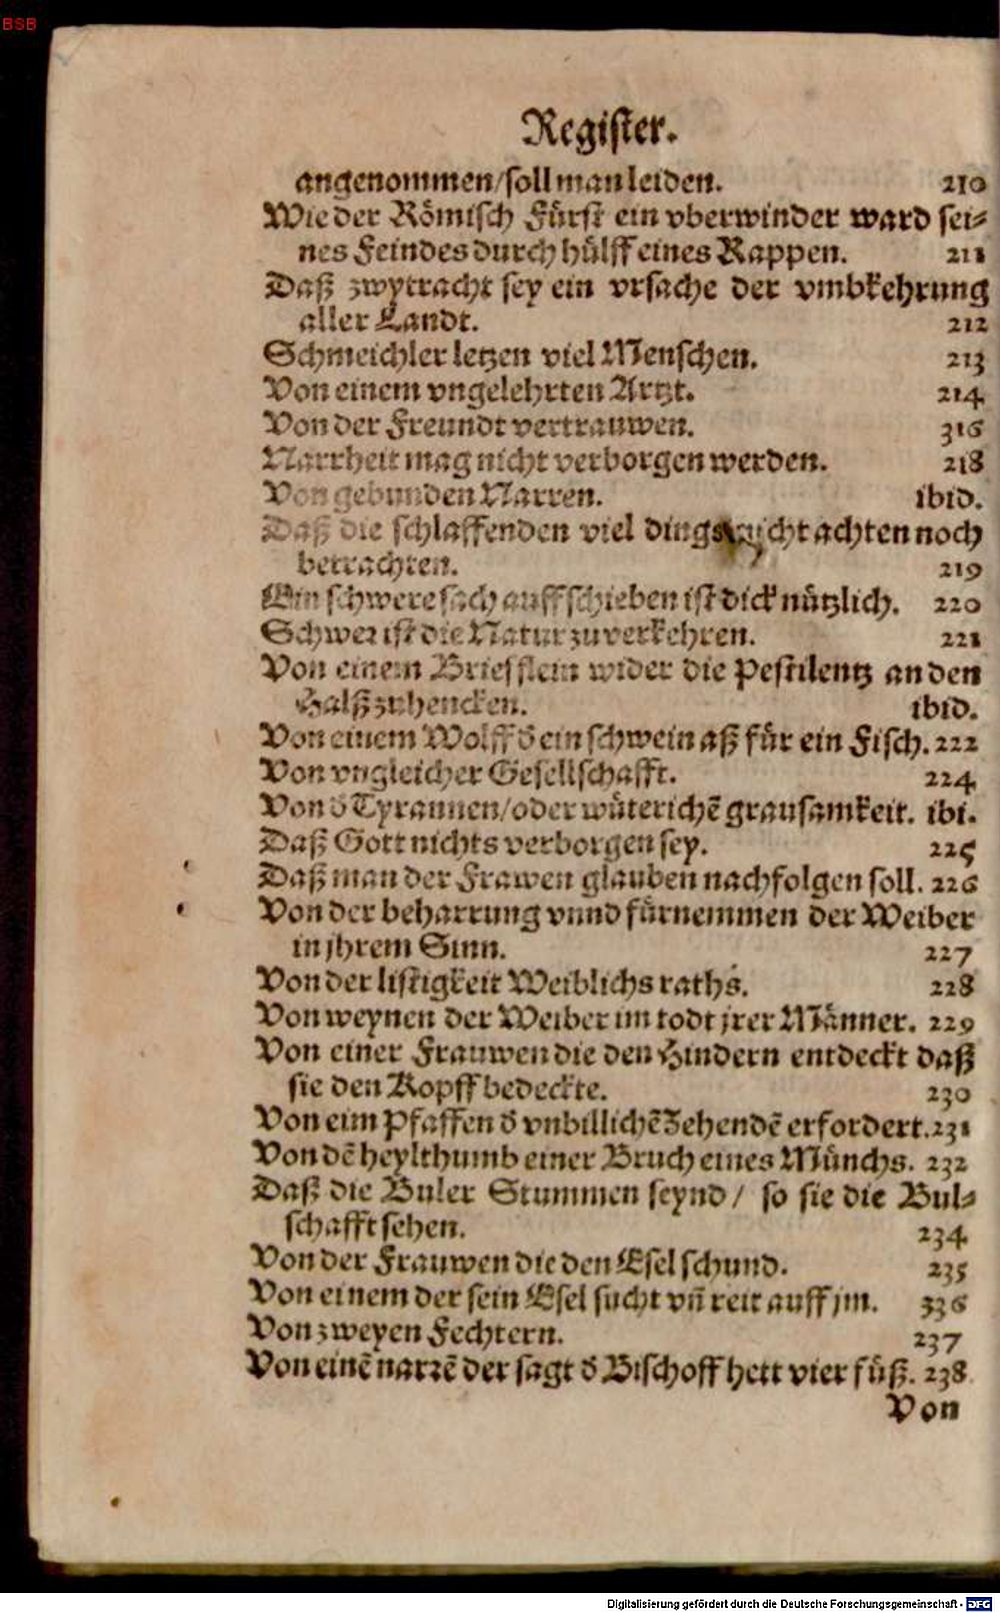 BSB
Register.
angenommen/soll man leiden. 210
Wie der Römisch Fürst ein vberwinder ward sei⸗
nes Feindes durch hülff eines Rappen. 211
Daß zwytracht sey ein vrsache der vmbkehrung
aller Landt. 212
Schmeichler letzen viel Menschen. 213
Von einem vngelehrten Artzt. 214
Von der Freundt vertrauwen. 316
Narrheit mag nicht verborgen werden. 218
Von gebunden Narren. ibid.
Daß die schlaffenden viel dings nicht achten noch
betrachten. 219
Ein schwere sach auffschieben ist dick nützlich. 220
Schwer ist die Natur zuverkehren. 221
Von einem Brieflein wider die Pestilentz an den
Halß zuhencken. ibid.
Von einem Wolff d̄ ein schwein aß für ein Fisch. 222
Von vngleicher Gesellschafft. 224
Von d̄ Tyrannen/oder wüterichē grausamkeit. ibi.
Daß Gott nichts verborgen sey. 225
Daß man der Frawen glauben nachfolgen soll. 226
Von der beharrung vnnd fürnemmen der Weiber
in jhrem Sinn. 227
Von der listigkeit Weiblichs raths. 228
Von weynen der Weiber im todt jrer Männer. 229
Von einer Frauwen die den Hindern entdeckt daß
sie den Kopff bedeckte. 230
Von eim Pfaffen d̄ vnbillichē Zehendē erfordert. 231
Von dē heylthumb einer Bruch eines Münchs. 232
Daß die Buler Stummen seynd/ so sie die Bul⸗
schafft sehen. 234
Von der Frauwen die den Esel schund. 235
Von einem der sein Esel sucht vn̄ reit auff jm. 336
Von zweyen Fechtern. 237
Von einē narrē der sagt d̄ Bischoff hett vier füß. 238
Von
Digitalisierung gefördert durch die Deutsche Forschungsgemeinschaft - DFG